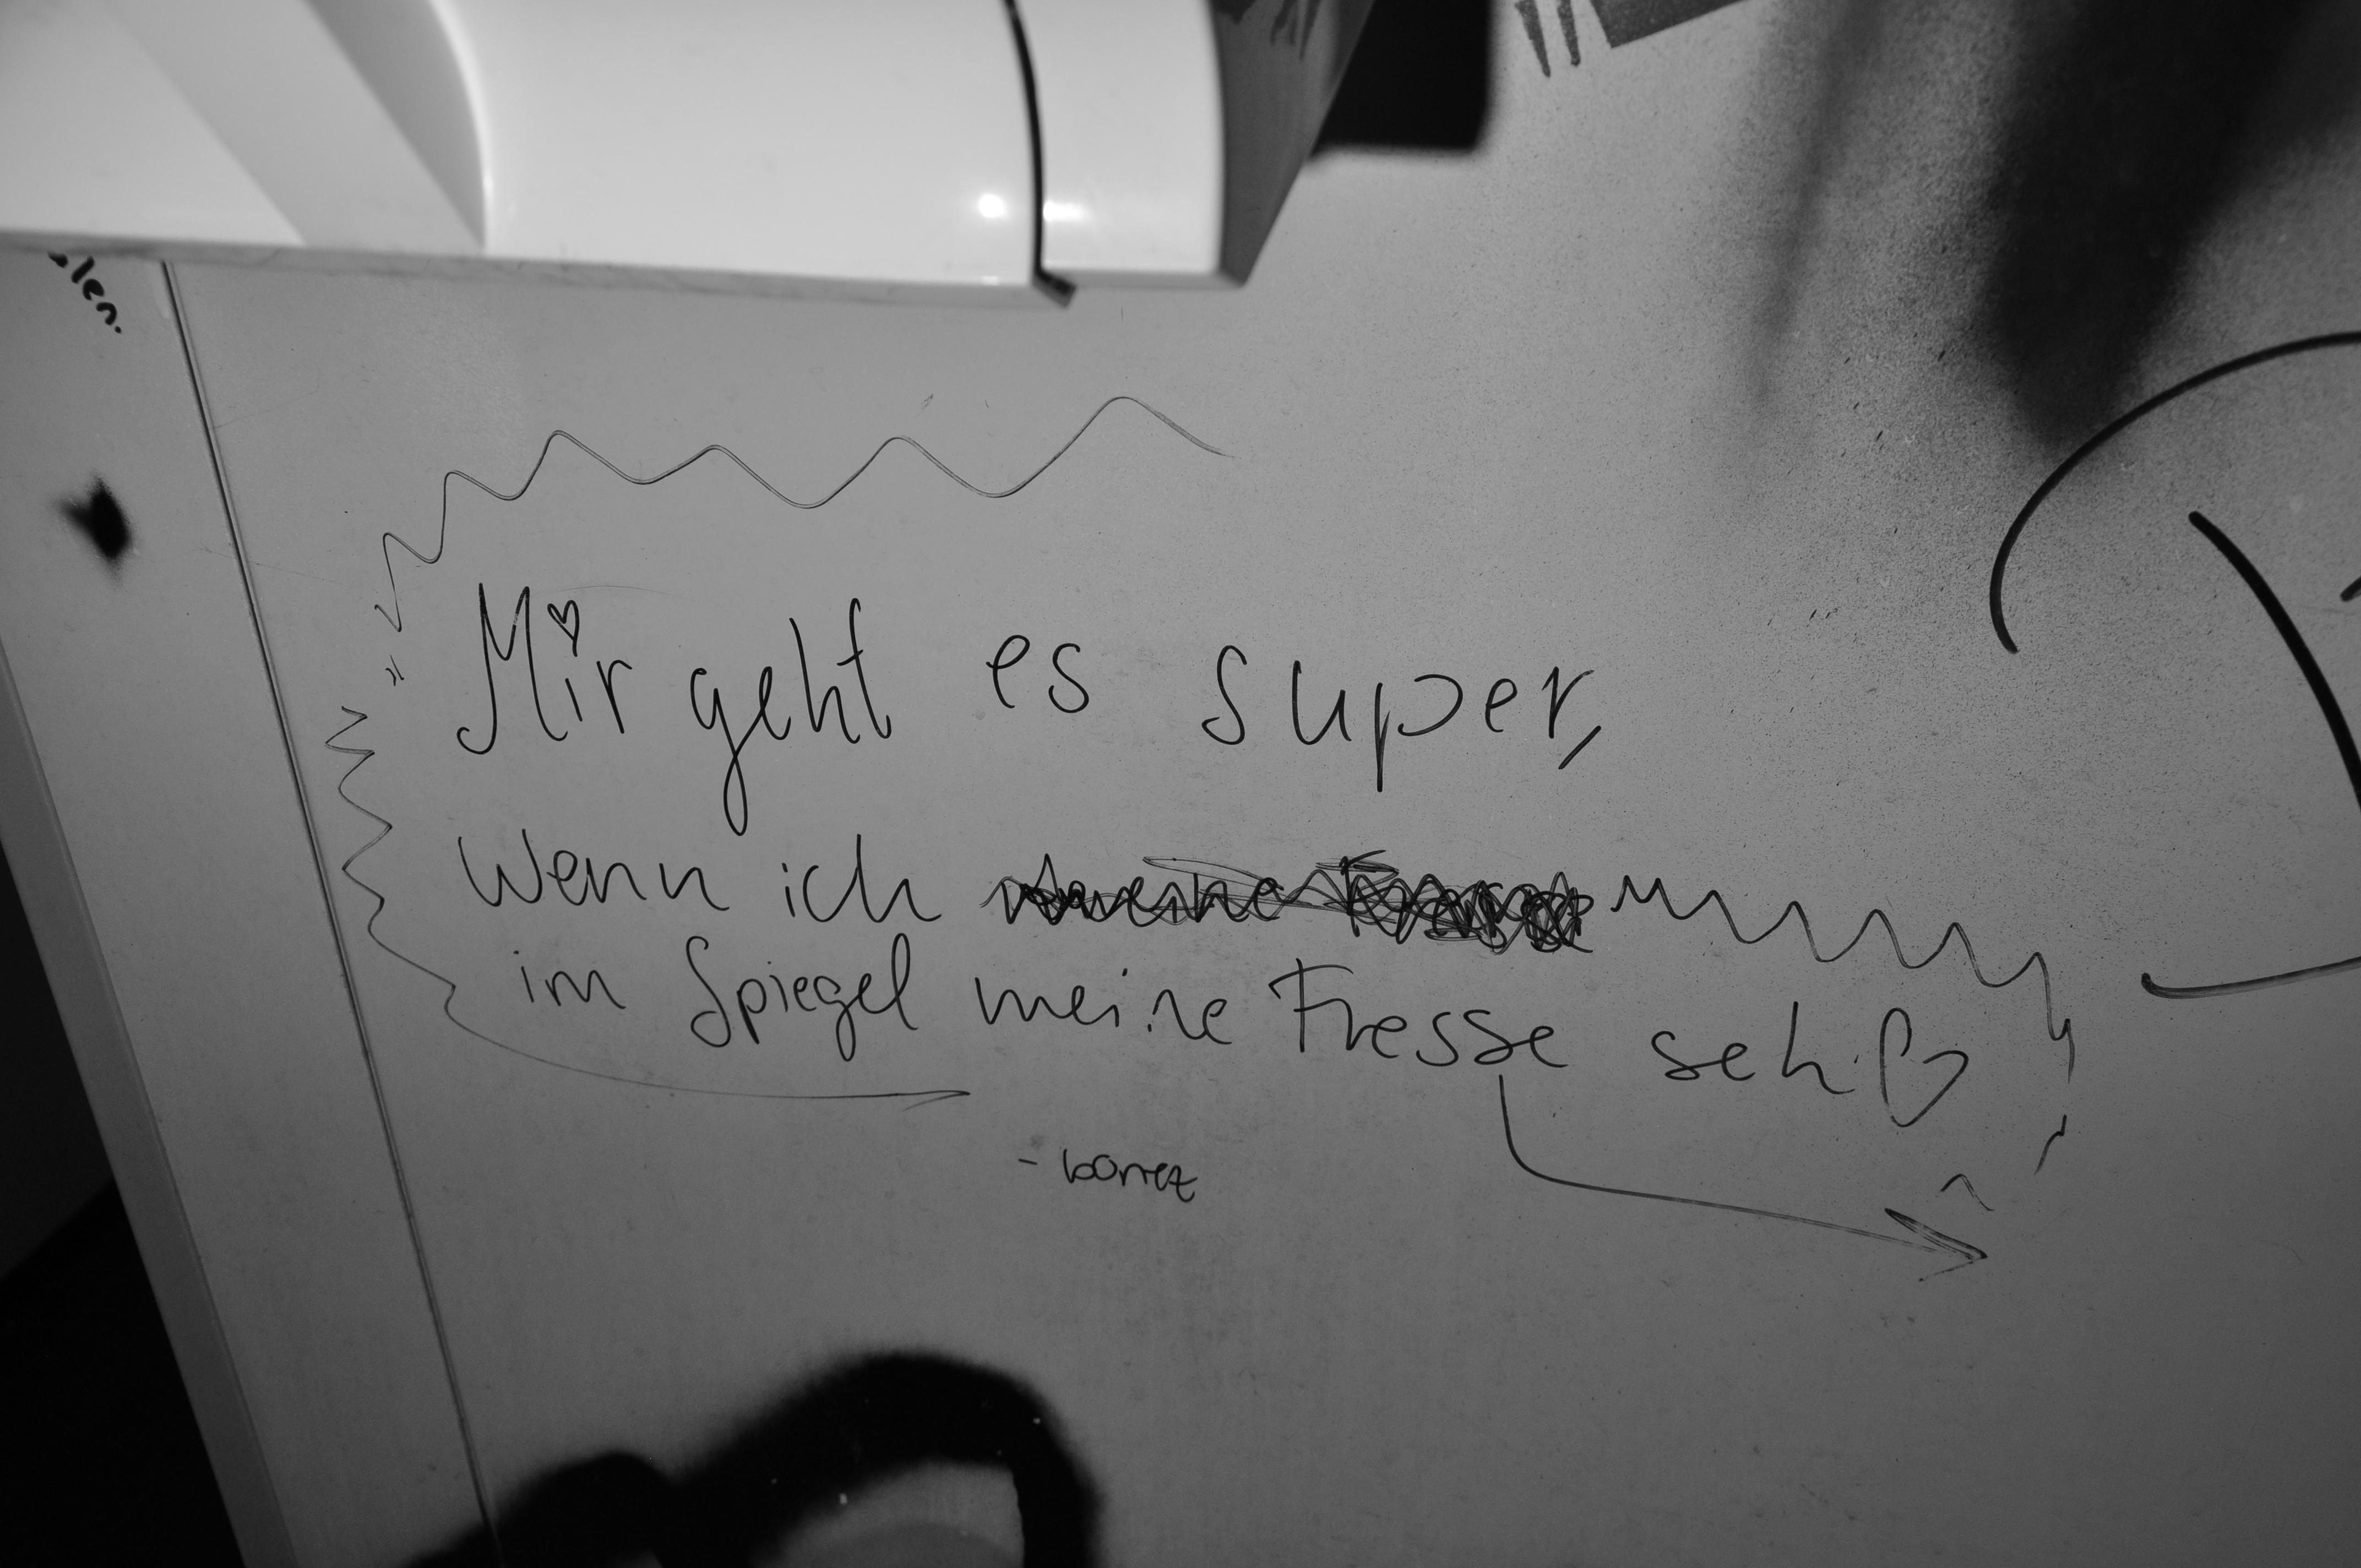 len.
Mir geht es super,
wenn ich meine Fresse
im Spiegel meine Fresse seh